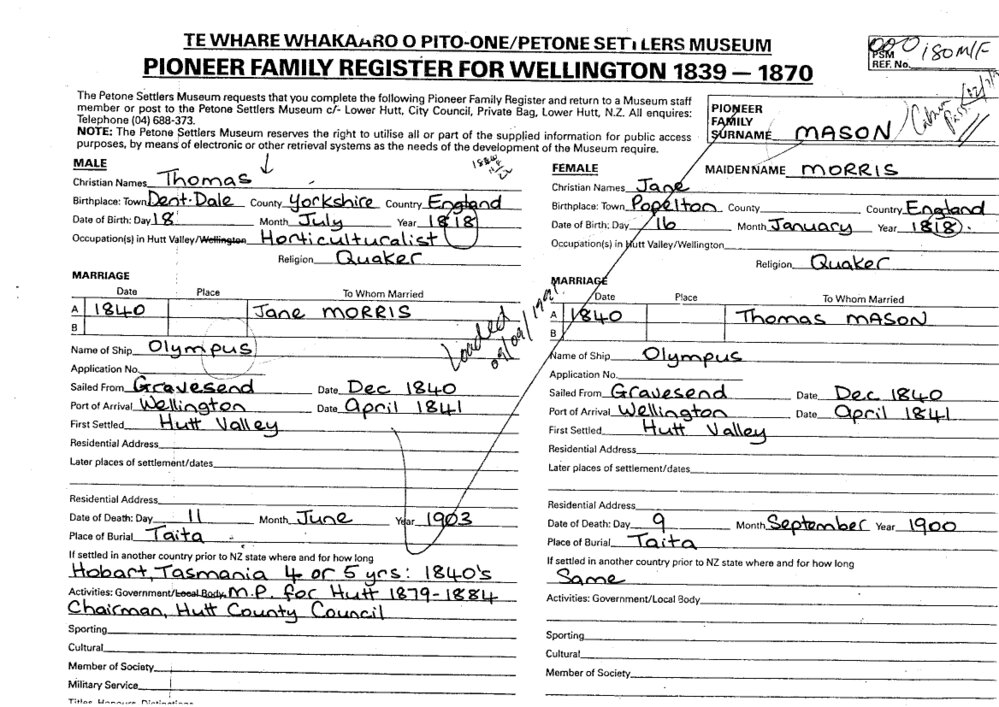 TE WHARE WHAKAARO O PITO-ONE/PETONE SETTLERS MUSEUM
PIONEER FAMILY REGISTER FOR WELLINGTON 1839 — 1870
PSM
REF. No. 180 M/F
The Petone Settlers Museum requests that you complete the following Pioneer Family Register and return to a Museum staff
member or post to the Petone Settlers Museum c/- Lower Hutt, City Council, Private Bag, Lower Hutt, N.Z. All enquires:
Telephone (04) 688-373.
NOTE: The Petone Settlers Museum reserves the right to utilise all or part of the supplied information for public access
purposes, by means of electronic or other retrieval systems as the needs of the development of the Museum require.
PIONEER
FAMILY
SURNAME MASON
MALE
Christian Names Thomas
Birthplace: Town Dent-Dale County Yorkshire Country England
Date of Birth: Day 18 Month July Year 1818
Occupation(s) in Hutt Valley/Wellington Horticulturalist
Religion Quaker
MARRIAGE
Date Place To Whom Married
A 1840 Jane MORRIS
B
Name of Ship Olympus
Application No.
Sailed From Gravesend Date Dec 1840
Port of Arrival Wellington Date April 1841
First Settled Hutt Valley
Residential Address
Later places of settlement/dates
Residential Address
Date of Death: Day 11 Month June Year 1903
Place of Burial Taita
If settled in another country prior to NZ state where and for how long
Hobart, Tasmania 4 or 5 yrs: 1840's
Activities: Government/Local Body M.P. for Hutt 1879-1884
Chairman, Hutt County Council
Sporting
Cultural
Member of Society
Military Service
Titles Honours Distinctions
Loaded
09/09/1991
FEMALE MAIDEN NAME MORRIS
Christian Names Jane
Birthplace: Town Popelton County Country England
Date of Birth: Day 16 Month January Year 1818.
Occupation(s) in Hutt Valley/Wellington
Religion Quaker
MARRIAGE
Date Place To Whom Married
A 1840 Thomas MASON
B
Name of Ship Olympus
Application No.
Sailed From Gravesend Date Dec 1840
Port of Arrival Wellington Date April 1841
First Settled Hutt Valley
Residential Address
Later places of settlement/dates
Residential Address
Date of Death: Day 9 Month September Year 1900
Place of Burial Taita
If settled in another country prior to NZ state where and for how long
Same
Activities: Government/Local Body
Sporting
Cultural
Member of Society